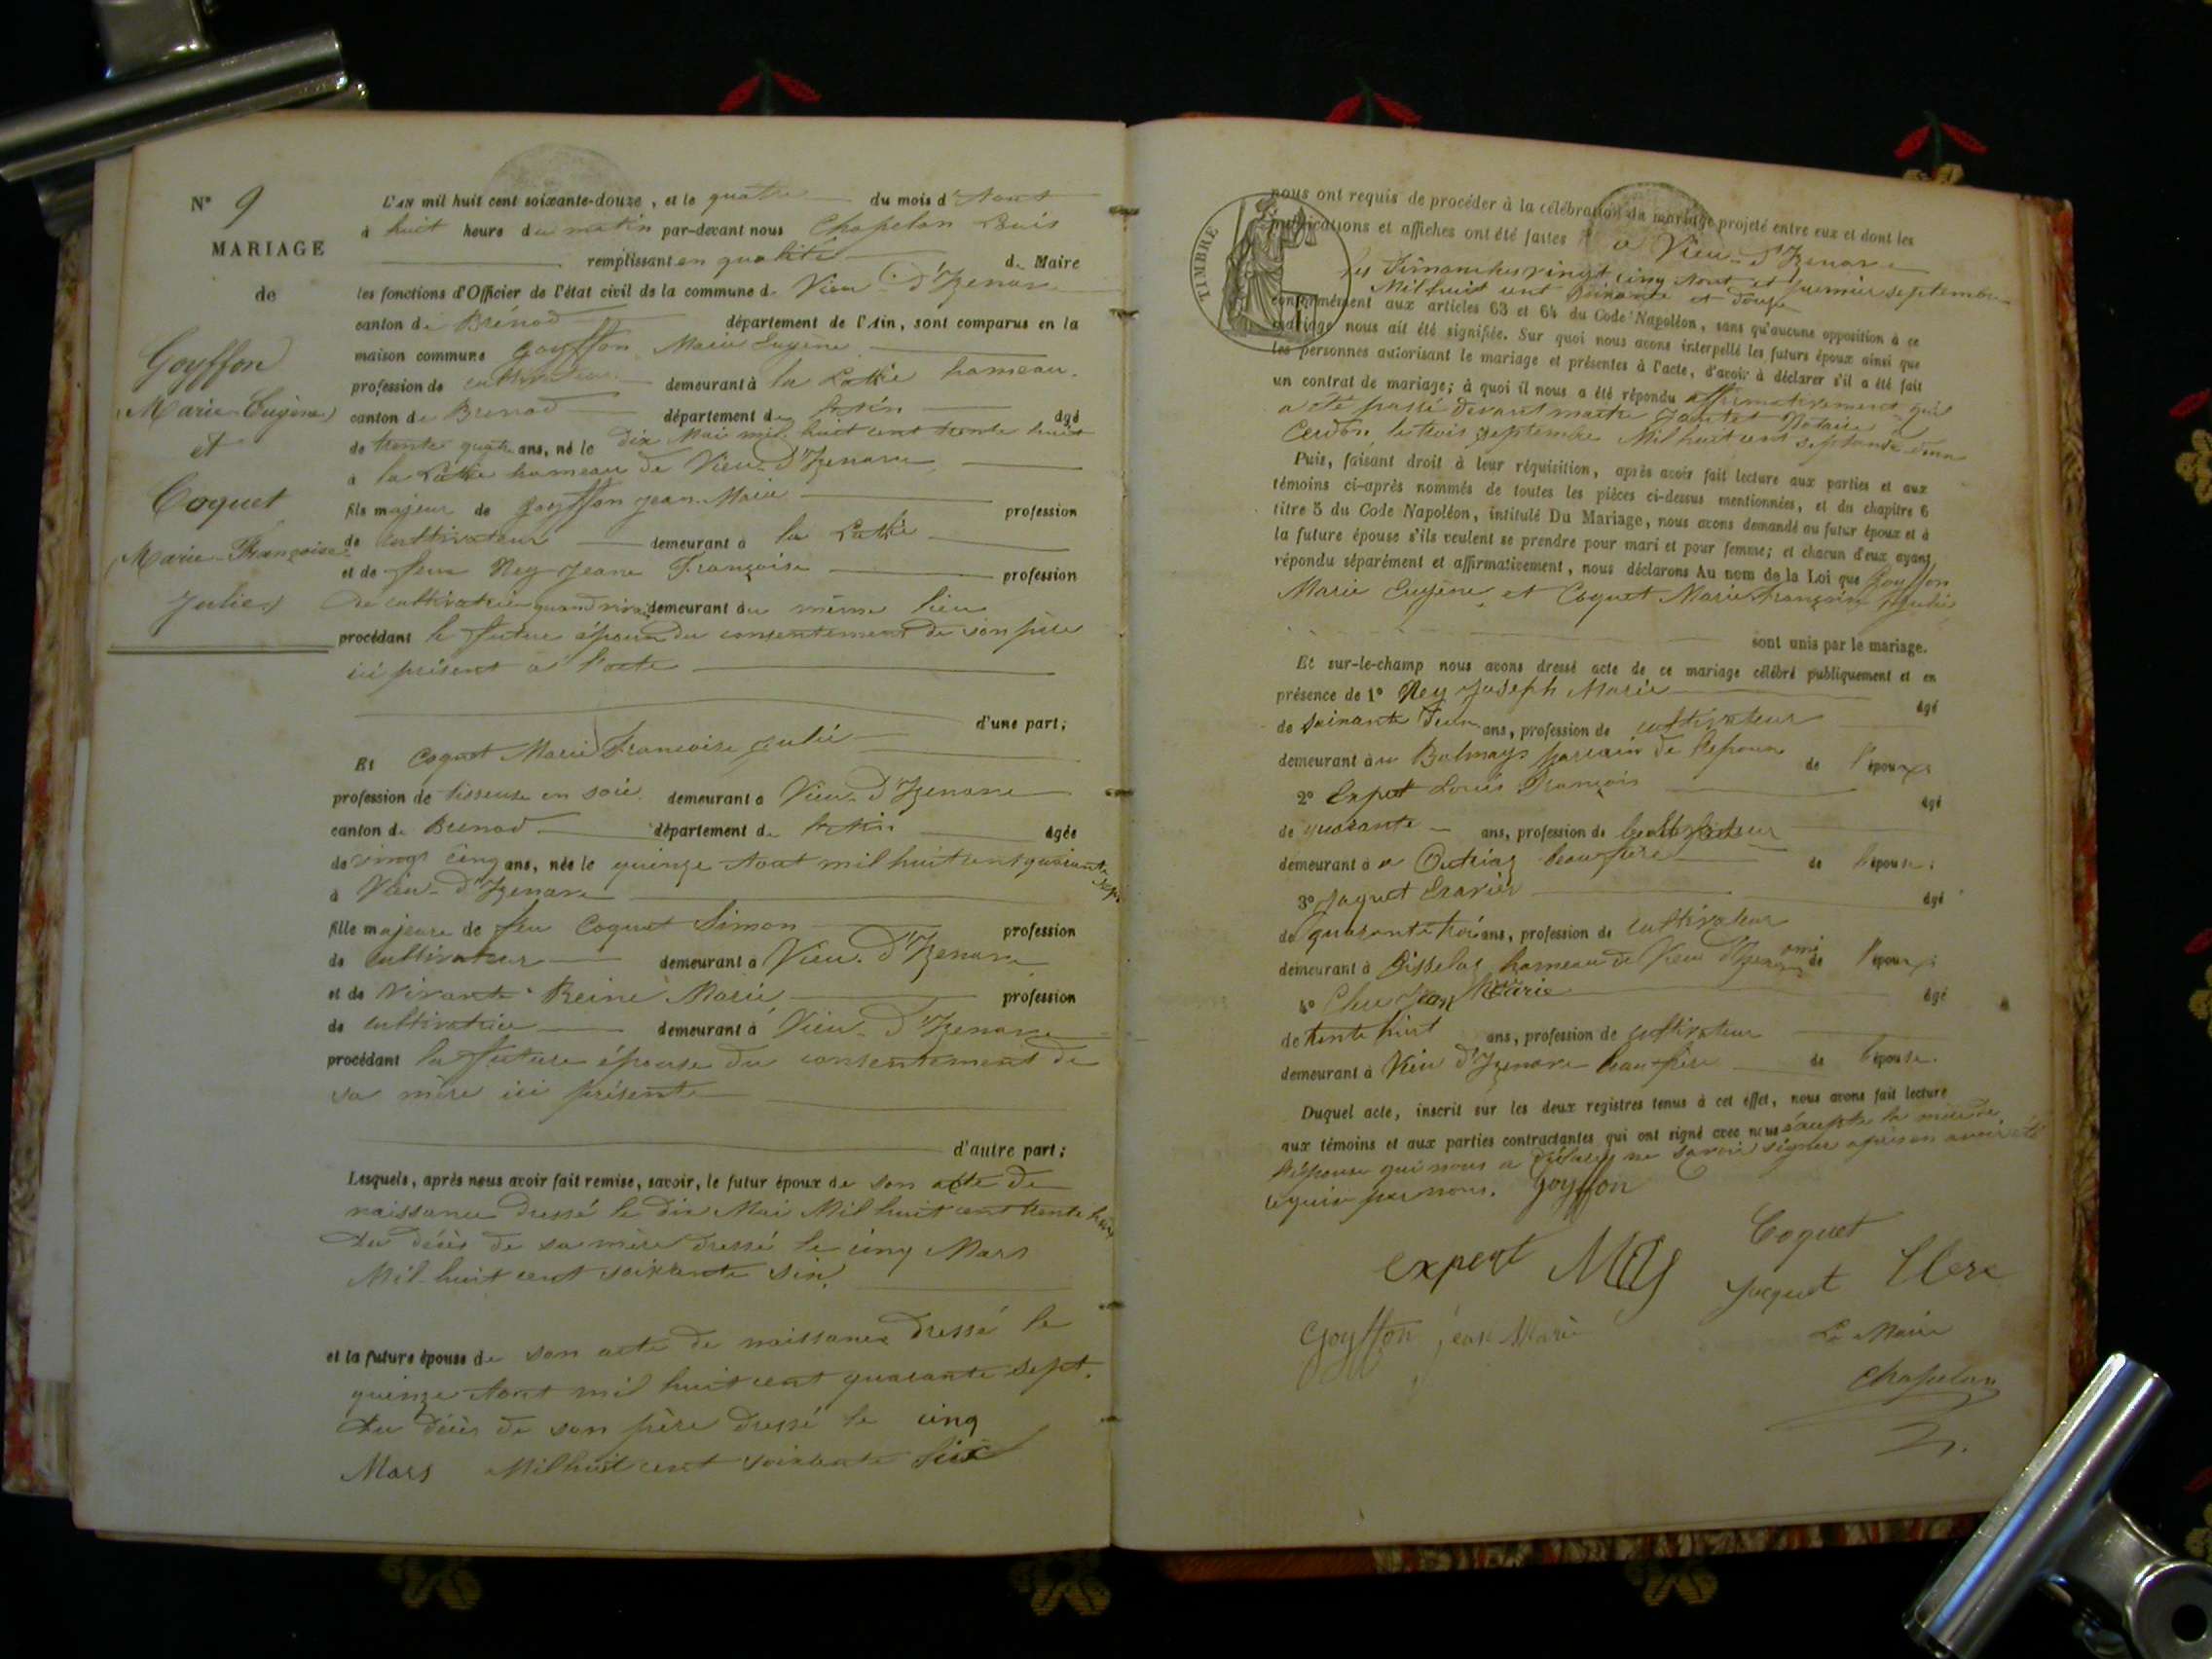 N° 9
MARIAGE
de
Goyffon
(Marie-Eugène)
et
Coquet
(Marie-Françoise
Julie)
L'AN mil huit cent soixante-douze, et le quatre du mois d'Aout
à huit heure du matin par-devant nous Chapelan Louis
remplissant en qualité de Maire
les fonctions d'Officier de l'état civil de la commune de Vieu-d'Izenave
canton de Brénod département de l'Ain, sont comparus en la
maison commune Goyffon Marie Eugène
profession de cultivateur demeurant à la hameau
canton de Brenod département de l'Ain âgé
de trente quatre ans, né le dix Mai mil huit cent trente huit
à la hameau de Vieu-d'Izenave
fils majeur de Goyffon Jean-Marie profession
de cultivateur demeurant à la
et de feue Ney Jeane Françoise profession
de cultivatrice quand vivait demeurant au même lieu
procédant le futur époux du consentement de son père
ici présent à l'acte
d'une part;
Et Coquet Marie Francoise Julie
profession de tisseuse en soie demeurant à Vieu-d'Izenave
canton de Brenod département de l'Ain âgée
de vingt cinq ans, née le quinze Aout mil huit cent quarante sept
à Vieu-d'Izenave
fille majeure de feu Coquet Simon profession
de cultivateur demeurant à Vieu-d'Izenave
et de vivante Reine Marie profession
de cultivatrice demeurant à Vieu-d'Izenave
procédant la future épouse du consentement de
sa mère ici présente
d'autre part;
Lesquels, après nous avoir fait remise, savoir, le futur époux de son acte de
naissance dressé le dix Mai Mil huit cent trente huit
du décès de sa mère dressé le cinq Mars
Mil huit cent soixante six
et la future épouse de son acte de naissance dressé le
quinze Aout mil huit cent quarante sept.
du décès de son père dressé le cinq
Mars Mil huit cent soixante six
TIMBRE
nous ont requis de procéder à la célébration du mariage projeté entre eux et dont les
publications et affiches ont été faites à Vieu-d'Izenave
les Dimanches vingt cinq Aout et premier septembre
Mil huit cent soixante et douze
conformément aux articles 63 et 64 du Code Napoléon, sans qu'aucune opposition à ce
mariage nous ait été signifiée. Sur quoi nous avons interpellé les futurs époux ainsi que
les personnes autorisant le mariage et présentes à l'acte, d'avoir à déclarer s'il a été fait
un contrat de mariage; à quoi il nous a été répondu affirmativement qu'il
a été passé devant maitre Notaire à
Cerdon, le trois septembre Mil huit cent septante deux
Puis, faisant droit à leur réquisition, après avoir fait lecture aux parties et aux
témoins ci-après nommés de toutes les pièces ci-dessus mentionnées, et du chapitre 6
titre 5 du Code Napoléon, intitulé Du Mariage, nous avons demandé au futur époux et à
la future épouse s'ils veulent se prendre pour mari et pour femme; et chacun d'eux ayant
répondu séparément et affirmativement, nous déclarons Au nom de la Loi que Goyffon
Marie Eugène, et Coquet Marie Françoise Julie
sont unis par le mariage.
Et sur-le-champ nous avons dressé acte de ce mariage célébré publiquement et en
présence de 1° Ney Joseph Marie âgé
de soixante deux ans, profession de cultivateur
demeurant à au Balmay parrain de l'époux de l'époux
2° Expert Louis François âgé
de quarante ans, profession de
demeurant à à Outriaz beau frère de l'épouse
3° Jaquet Xavier âgé
de quarante trois ans, profession de cultivateur
demeurant à hameau de Vieu d'Izenave ami de l'époux
4° Clerc Jean Marie âgé
de trente huit ans, profession de cultivateur
demeurant à Vieu d'Izenave beau-frère de l'épouse.
Duquel acte, inscrit sur les deux registres tenus à cet effet, nous avons fait lecture
aux témoins et aux parties contractantes qui ont signé avec nous excepté la mère de
l'épouse qui nous a déclaré ne savoir signer après en avoir été
requise par nous. Goyffon
Coquet
expert Ney Jacquet Clerc
Goyffon jean Marie
Le Maire
Chapelan